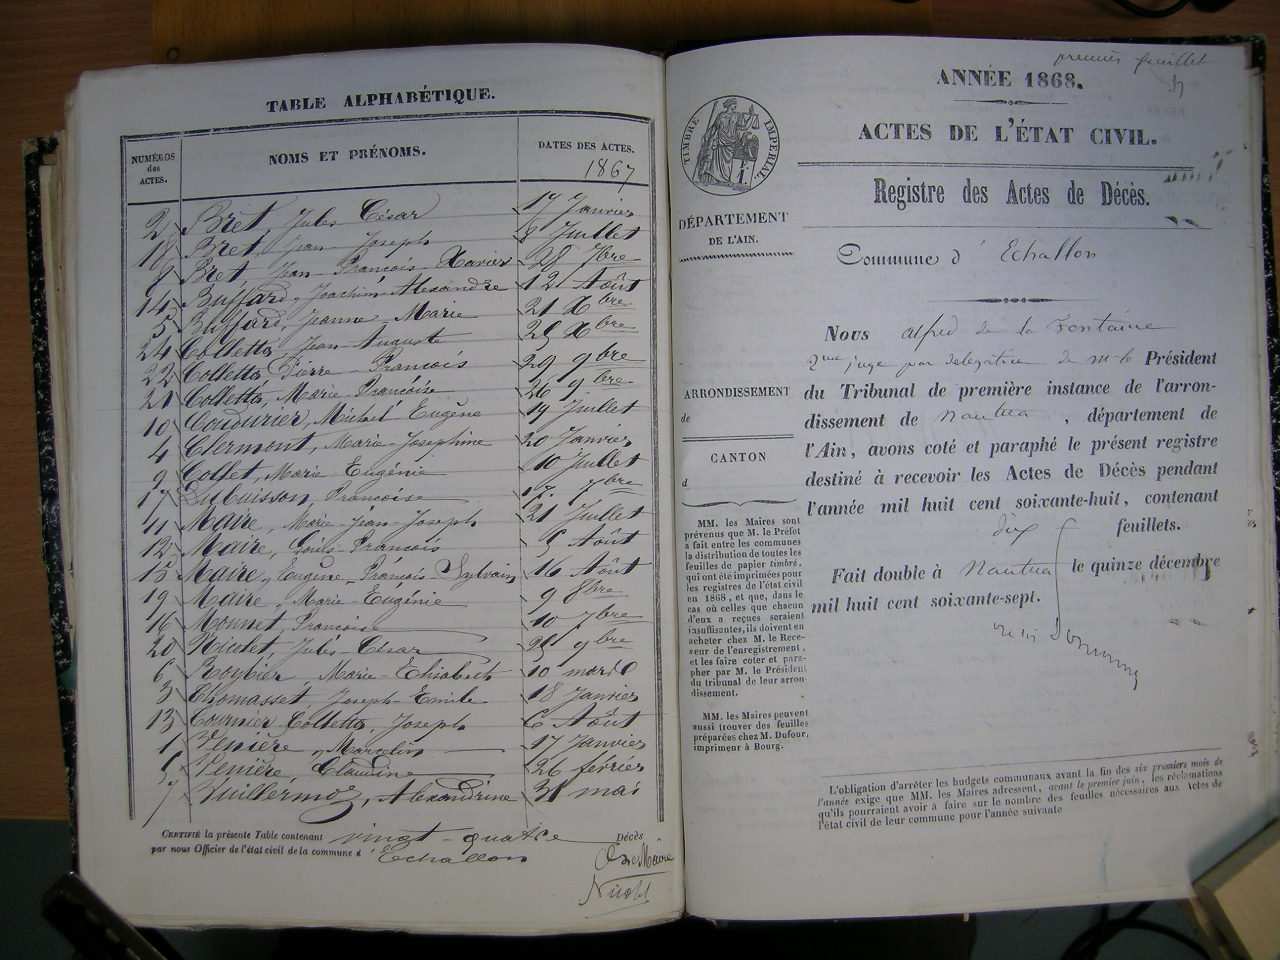 TABLE ALPHABÉTIQUE.
NUMÉROS des ACTES. NOMS ET PRÉNOMS. DATES DES ACTES.
1867
2 Bret, Jules César 17 Janvier
18 Bret, Jean Joseph Juillet
8 Bret Jean François Xavier 28 7bre
14 Buffard, Joachim Alexandre 12 Août
5 Buffard, Jeanne Marie 21 Xbre
24 Colletta Jean Auguste 25 Xbre
22 Colletta Pierre François 29 9bre
21 Colletta, Marie Françoise 26 9bre
10 Coudurier, Michel Eugène 19 Juillet
4 Clermont, Marie Josephine 20 Janvier
9 Collet, Marie Eugénie 10 Juillet
17 Dubuisson, Françoise 17 7bre
11 Maire, Marie Jean Joseph 21 Juillet
12 Maire, Louis François 5 Août
15 Maire, Eugène François Sylvain 16 Août
19 Maire, Marie Eugénie 9 8bre
16 Monnet, Françoise 10 7bre
20 Nicolet, Jules César 9bre
6 Roybier, Marie Elisabeth 10 mars
3 Thomasset Joseph Emile 18 Janvier
13 Tournier Colletta, Joseph 6 Août
1 Venière, Marcelin 17 Janvier
5 Venière, Claudine 26 février
7 Vuillermoz, Alexandrine 31 mai
CERTIFIÉ la présente Table contenant vingt-quatre Décès
par nous Officier de l'état civil de la commune d'Echallon
Le Maire
premier feuillet
ANNÉE 1868.
ACTES DE L'ÉTAT CIVIL.
Registre des Actes de Décès.
TIMBRE IMPÉRIAL
DÉPARTEMENT
DE L'AIN.
ARRONDISSEMENT
de
CANTON
d
MM. les Maires sont
prévenus que M. le Préfet
a fait entre les communes
la distribution de toutes les
feuilles de papier timbré,
qui ont été imprimées pour
les registres de l'état civil
en 1868, et que, dans le
cas où celles que chacun
d'eux a reçues seraient
insuffisantes, ils doivent en
acheter chez M. le Rece-
veur de l'enregistrement,
et les faire coter et para-
pher par M. le Président
du tribunal de leur arron-
dissement.
MM. les Maires peuvent
aussi trouver des feuilles
préparées chez M. Dufour,
imprimeur à Bourg.
Commune d'Echallon
Nous alfred de la Fontaine
juge par délégation de mr le Président
du Tribunal de première instance de l'arron-
dissement de nantua, département de
l'Ain, avons coté et paraphé le présent registre
destiné à recevoir les Actes de Décès pendant
l'année mil huit cent soixante-huit, contenant
dix feuillets.
Fait double à Nantua le quinze décembre
mil huit cent soixante-sept.
L'obligation d'arrêter les budgets communaux avant la fin des six premiers mois de
l'année exige que MM. les Maires adressent, avant le premier juin, les réclamations
qu'ils pourraient avoir à faire sur le nombre des feuilles nécessaires aux Actes de
l'état civil de leur commune pour l'année suivante